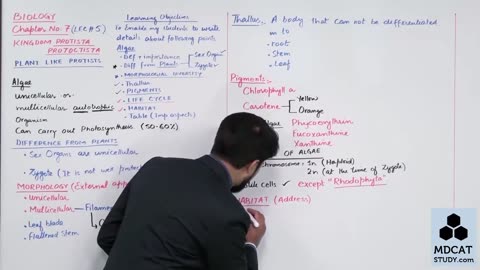 BIOLOGY
Chapter No: 7 (LEC # 5)
KINGDOM PROTISTA
PROTOCTISTA
PLANT LIKE PROTISTS
Algae
Unicellular or
multicellular autotrophic
Organism
Can carry out Photosynthesis (50-60%)
DIFFERENCE FROM PLANTS
Sex Organ are unicellular
Zygote (It is not well
MORPHOLOGY (External
Unicellular
Multicellular
Leaf blade
Flattened Stem
Learning Objectives
To Enable my students to write
details about following points
Algae
Def + importance
Diff from Plants
Sex Organ
Zygote
MORPHOLOGICAL DIVERSITY
Thallus
PIGMENTS
LIFE CYCLE
HABITAT
Table (Imp aspects)
Thallus:. A body that can not be differentiated
in to
root
Stem
Leaf
Pigments:.
Chlorophyll a
Carotene
Yellow
Orange
Phycoerythrin
Fucoxanthine
Xanthine
OF ALGAE
1n (Haploid)
2n (at the time of Zygote)
cells ✓ except "Rhodophyta"
HABITAT (Address)
MDCAT
STUDY.com